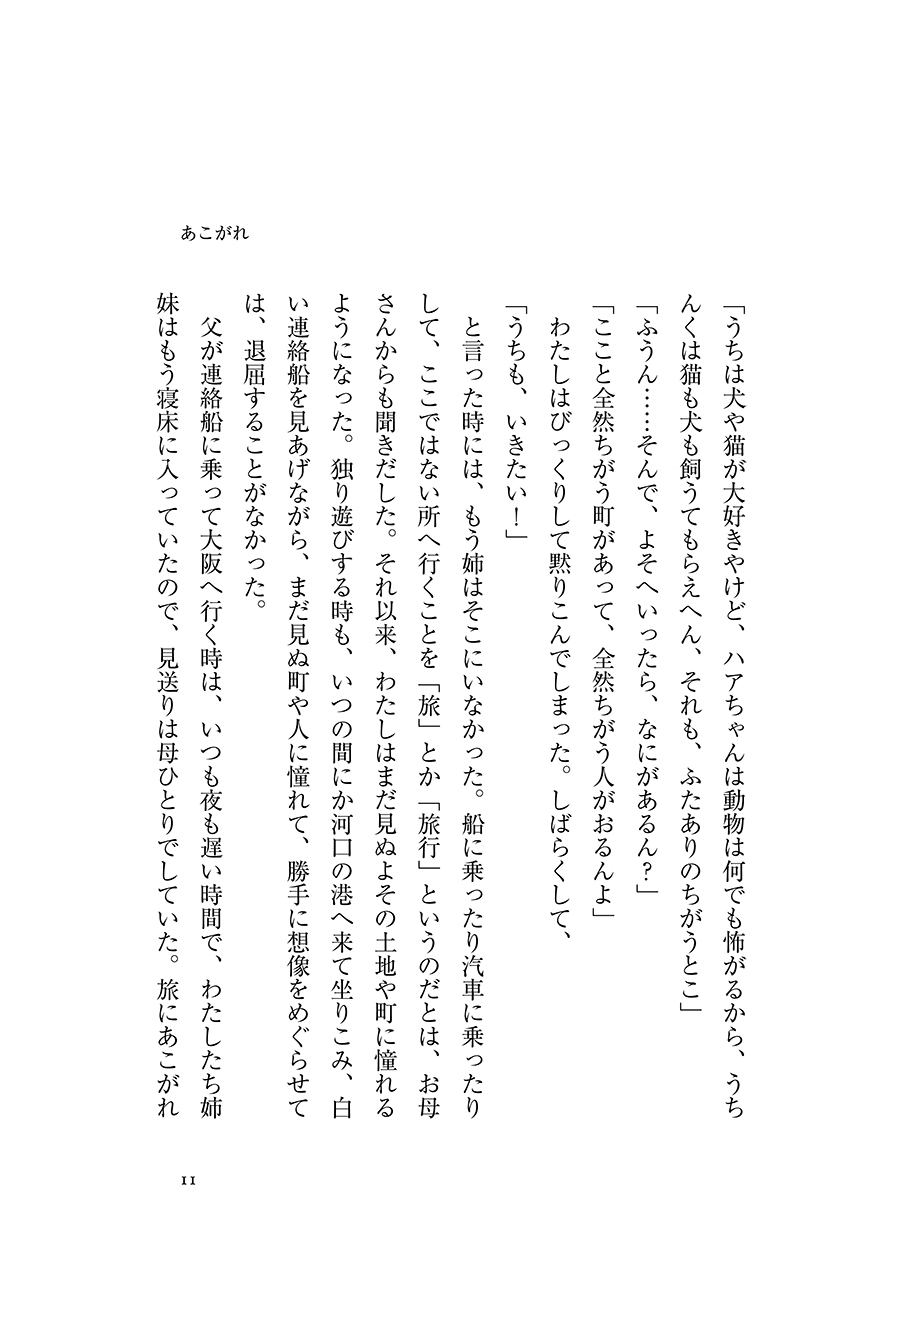 あこがれ
「うちは犬や猫が大好きやけど、ハアちゃんは動物は何でも怖がるから、うち
んくは猫も犬も飼うてもらえへん、それも、ふたありのちがうとこ」
「ふうん……そんで、よそへいったら、なにがあるん?」
「ここと全然ちがう町があって、全然ちがう人がおるんよ」
　わたしはびっくりして黙りこんでしまった。しばらくして、
「うちも、いきたい!」
　と言った時には、もう姉はそこにいなかった。船に乗ったり汽車に乗ったり
して、ここではない所へ行くことを「旅」とか「旅行」というのだとは、お母
さんからも聞きだした。それ以来、わたしはまだ見ぬよその土地や町に憧れる
ようになった。独り遊びする時も、いつの間にか河口の港へ来て坐りこみ、白
い連絡船を見あげながら、まだ見ぬ町や人に憧れて、勝手に想像をめぐらせて
は、退屈することがなかった。
　父が連絡船に乗って大阪へ行く時は、いつも夜も遅い時間で、わたしたち姉
妹はもう寝床に入っていたので、見送りは母ひとりでしていた。旅にあこがれ
11